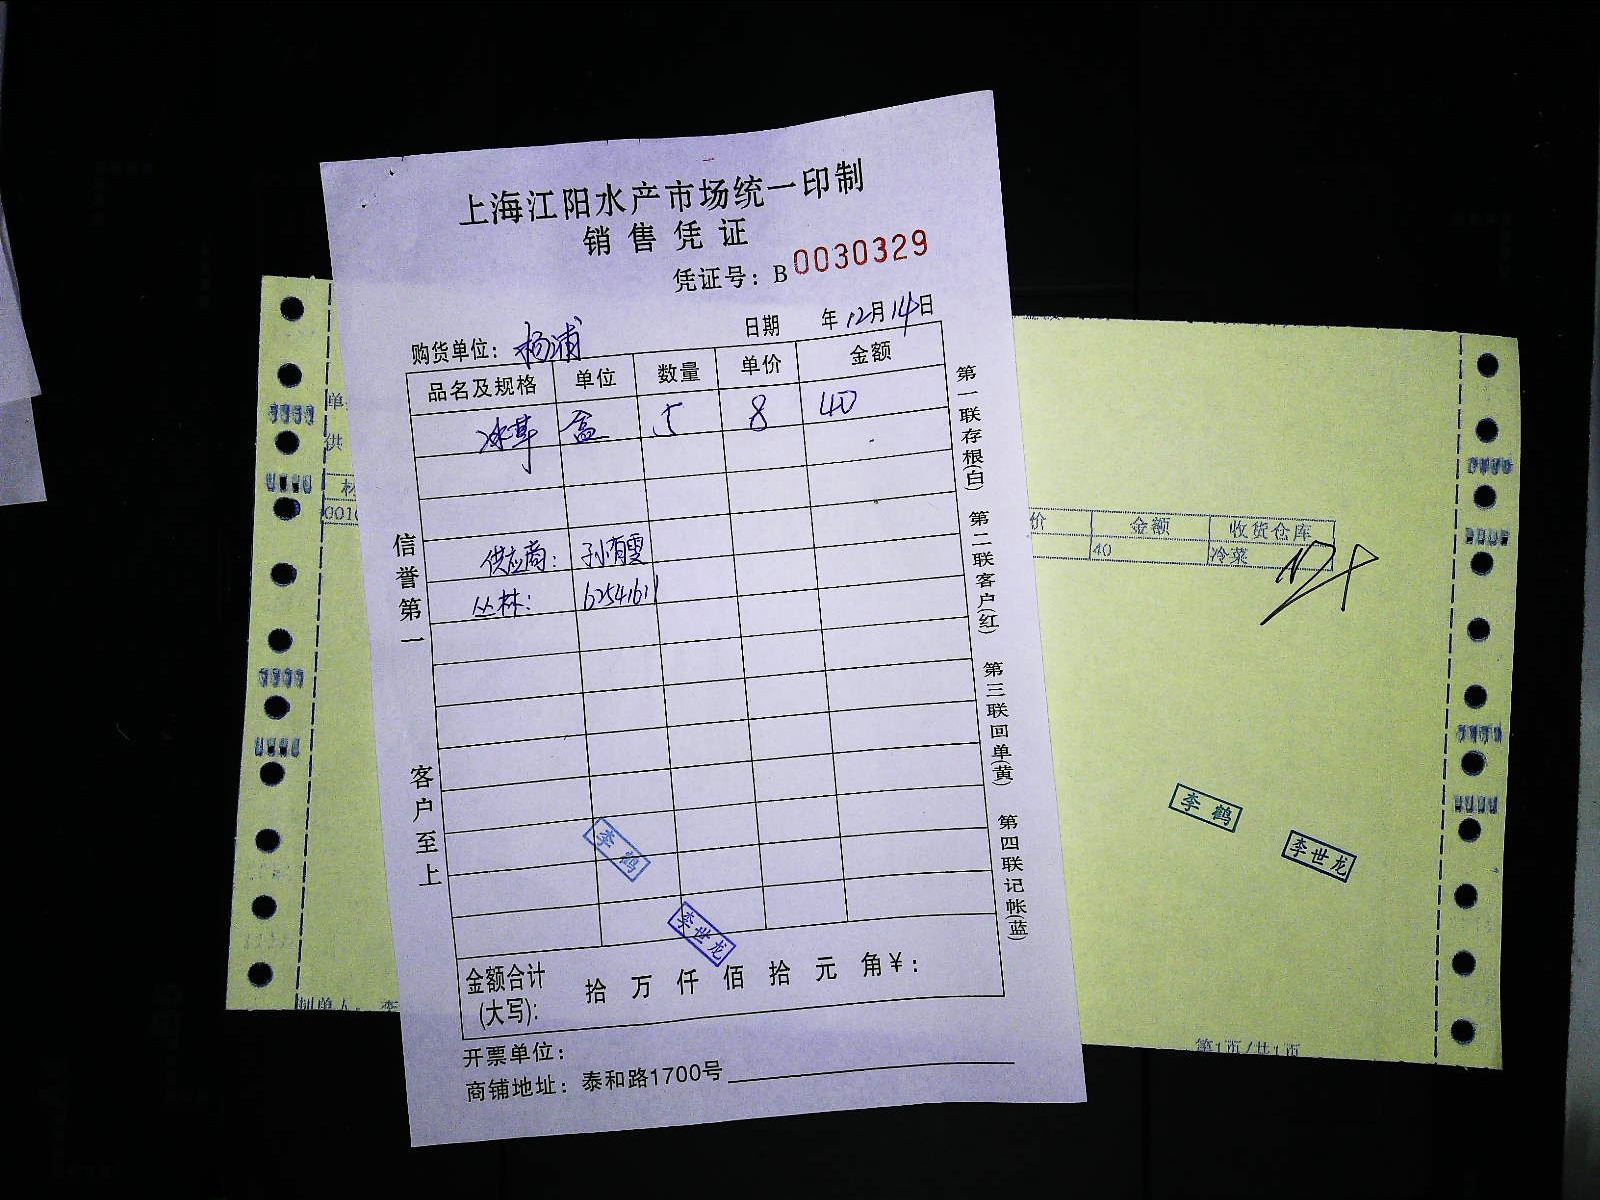 上海江阳水产市场统一印制
销售凭证
凭证号：B 0030329
购货单位：杨浦 日期 年12月14日
品名及规格 单位 数量 单价 金额
冰草 盒 5 8 40
供应商：孙有雯
丛林：62541611
金额合计(大写)： 拾 万 仟 佰 拾 元 角￥：
开票单位：
商铺地址：泰和路1700号
信誉第一 客户至上
第一联存根(白) 第二联客户(红) 第三联回单(黄) 第四联记帐(蓝)
李鹤
李世龙
单
供
材
0010
价 金额 收货仓库
40 冷菜
李鹤
李世龙
制单人：李
第1页/共1页